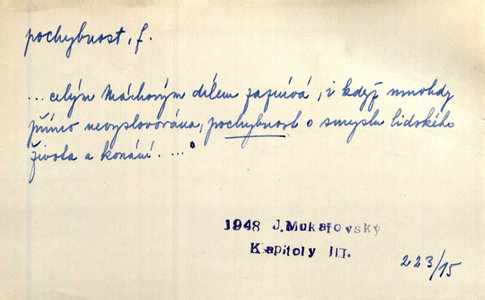 pochybnost, f.
...celým Máchovým dílem zaznívá, i když mnohdy
přímo nevyslovována, pochybnost o smyslu lidského
života a konání....
1948 J. Mukařovský
Kapitoly III.
223/15